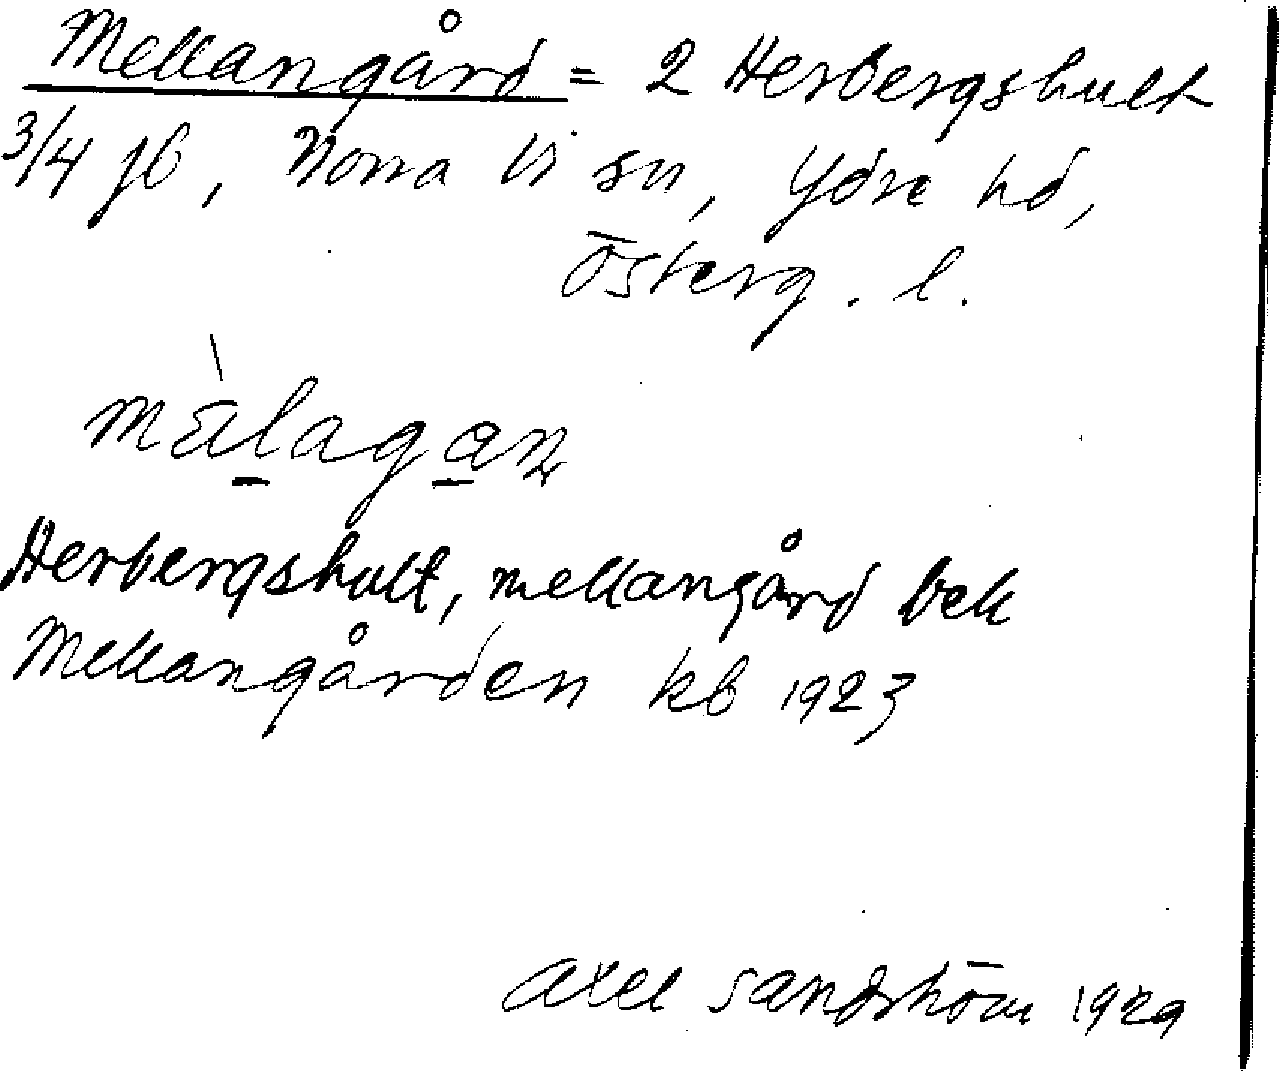 Mellangård = 2 Herbergshult
3/4 jb, Norra Vi sn, Ydre hd,
Österg. l.
Herbergshult, mellangård bek
Mellangården kb 1923
Axel Sandström 1929